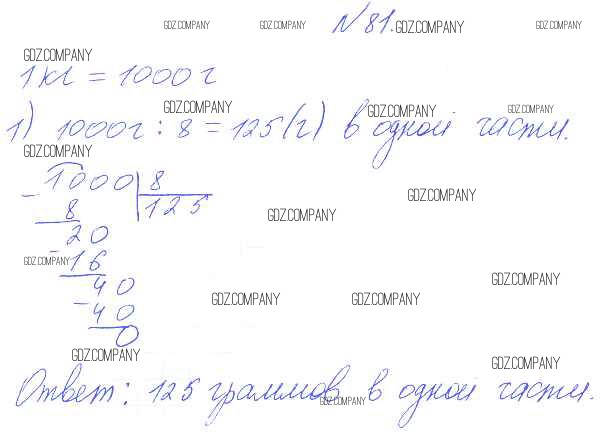 GDZ.COMPANY GDZ.COMPANY №81. GDZ.COMPANY GDZ.COMPANY
GDZ.COMPANY
1 кг = 1000 г
GDZ.COMPANY GDZ.COMPANY GDZ.COMPANY
1) 1000г : 8 = 125 (г) в одной части.
GDZ.COMPANY
1000 8
GDZ.COMPANY
- 8 125
GDZ.COMPANY
20
GDZ.COMPANY - 16
GDZ.COMPANY
40
GDZ.COMPANY GDZ.COMPANY
- 40
0
GDZ.COMPANY GDZ.COMPANY
Ответ: 125 граммов в одной части.
GDZ.COMPANY